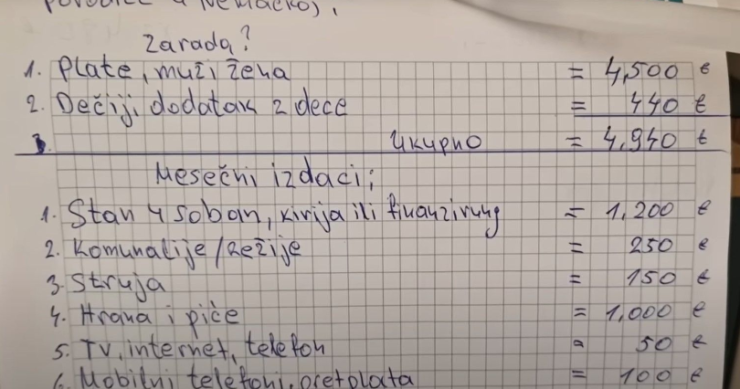 porodice u Nemačkoj,
Zarada?
1. Plate, muž i žena = 4,500 €
2. Dečiji dodatak 2 dece = 440 €
3. Ukupno = 4.940 €
Mesečni izdaci;
1. Stan 4 soban, kirija ili finanzirung = 1,200 €
2. Komunalije/Režije = 250 €
3. Struja = 150 €
4. Hrana i piće = 1,000 €
5. TV, internet, telefon = 50 €
6. Mobilni telefoni, pretplata = 100 €